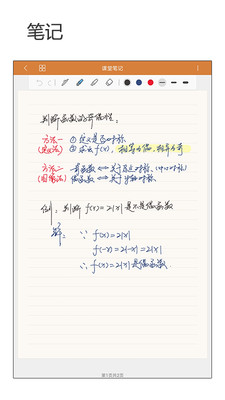 笔记
课堂笔记
判断函数的奇偶性:
方法一 ① 定义是否对称
(定义法) ② 求出 f(x),
方法二 函数 ⟺ 关于原点对称, 
(图像法) 偶函数 ⟺ 关于y轴对称
例: 判断 f(x)=2|x| 是不是偶函数
解: ∵ f(x)=2|x|
f(-x)=2|-x|=2|x|
∴ f(x)=2|x| 是偶函数.
第1页共2页